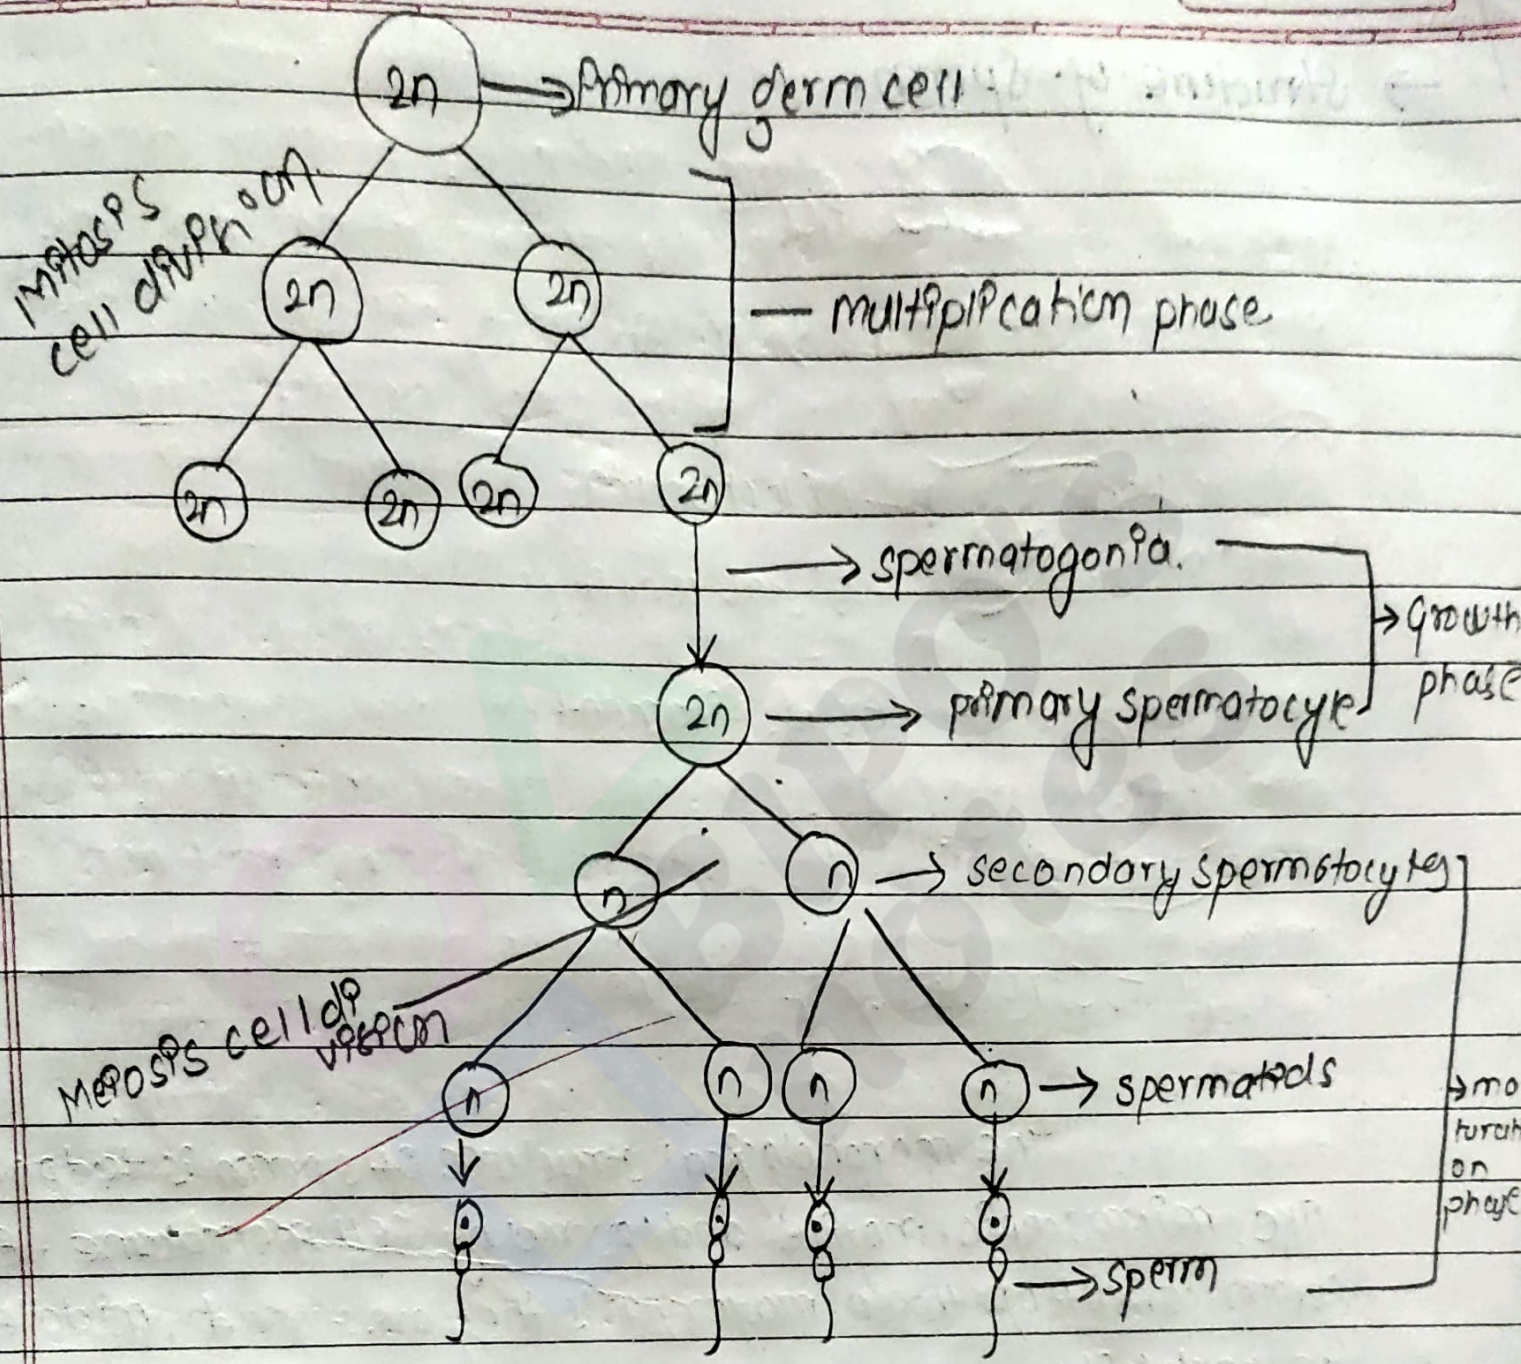 2n → Primary germ cell
mitosis
cell division
2n 2n
multiplication phase
2n 2n 2n 2n
→ spermatogonia.
→ Growth
phase
2n → primary spermatocyte
n n → secondary spermatocytes
Meiosis cell di
vision
n n n n → spermatids
→ ma
turati
on
phase
→ sperm